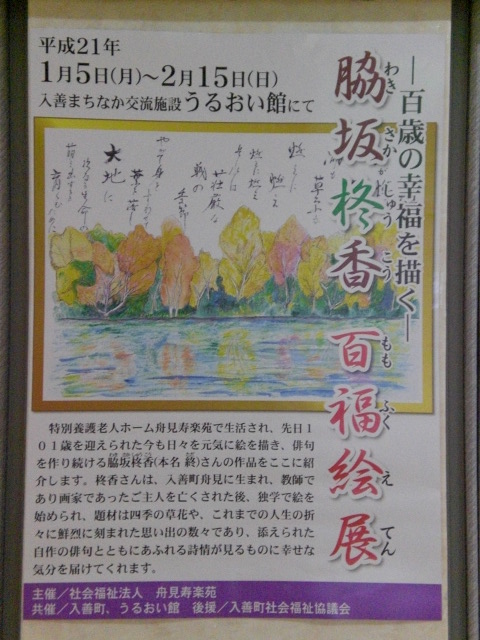 平成21年
1月5日(月)～2月15日(日)
入善まちなか交流施設うるおい館にて
―百歳の幸福を描く―
脇坂柊香百福絵展
わき さか しゅう こう もも ふく え てん
大地に
特別養護老人ホーム舟見寿楽苑で生活され、先日1
01歳を迎えられた今も日々を元気に絵を描き、俳句
を作り続ける脇坂柊香(本名 終)さんの作品をここに紹
介します。柊香さんは、入善町舟見に生まれ、教師で
あり画家であったご主人を亡くされた後、独学で絵を
始められ、題材は四季の草花や、これまでの人生の折
々に鮮烈に刻まれた思い出の数々であり、添えられた
自作の俳句とともにあふれる詩情が見るものに幸せな
気分を届けてくれます。
主催／社会福祉法人 舟見寿楽苑
共催／入善町、うるおい館 後援／入善町社会福祉協議会